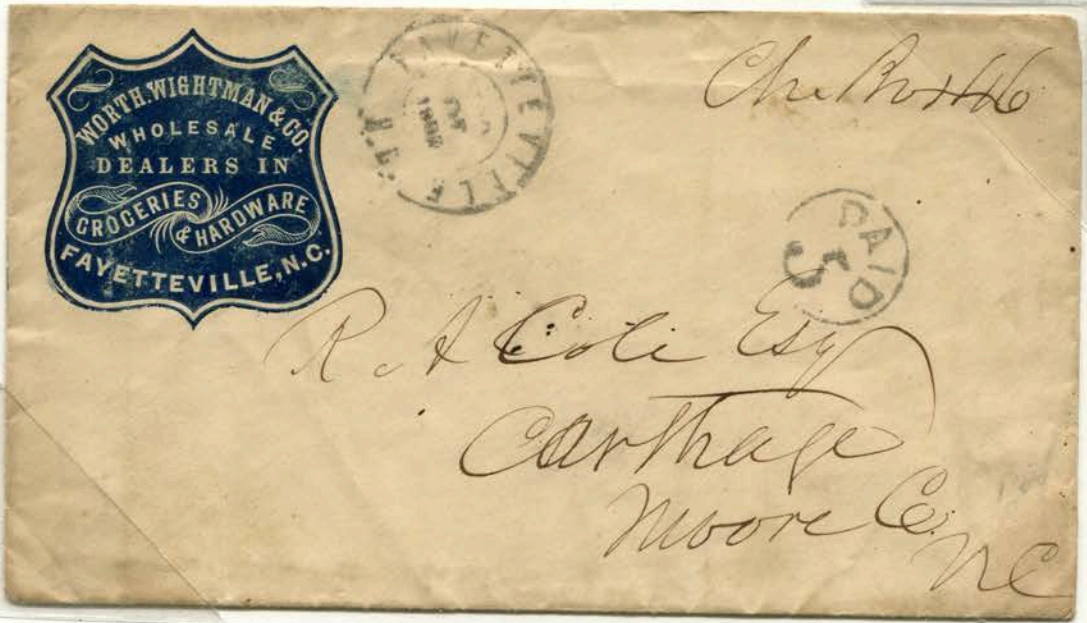 WORTH. WIGHTMAN & CO.
WHOLESALE
DEALERS IN
GROCERIES
& HARDWARE
FAYETTEVILLE, N.C.
FAYETTEVILLE
Ch. Box 46
PAID
5
R. A Cole Esq
Carthage
Moore Co.
NC